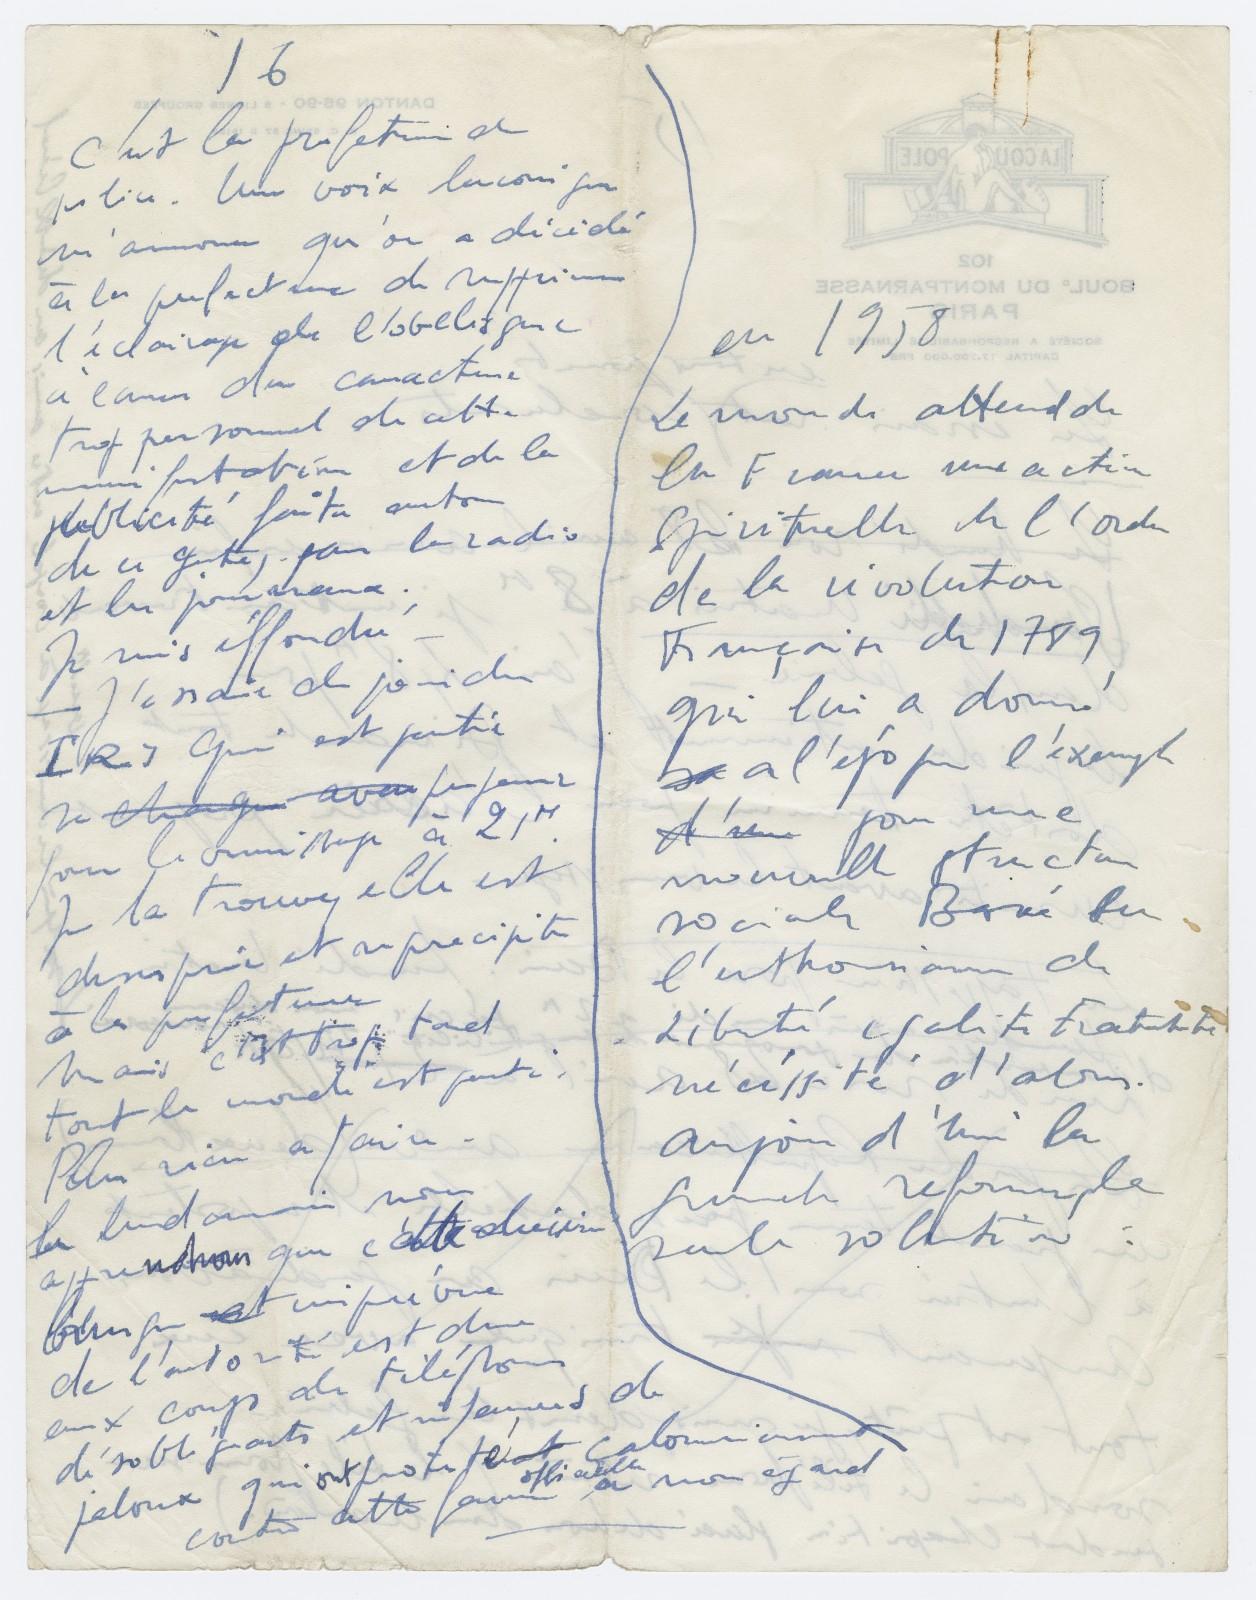 16
C'est la prefecture de
police. Une voix laconique
m'annonce qu'on a décidé
à la prefecture de supprimer
l'éclairage de l'obelisque
à cause du caractere
trop personnel de cette
manifestation et de la
publicité faite autour
de ce geste, par la radio
et les journaux.
Je suis éffondré –
— J'essaie de joindre
IRIS qui est partie
se chaque avec preparer
pour le vernissage à 21H.
Je la trouve, elle est
desesperée et se precipite
à la prefecture
mais c'est trop tard
tout le monde est parti.
Plus rien a faire.
Le lendemain nous
apprendrons que cette decision
et imprévue
de l'autorité est due
aux coups de téléphone
désobligeants et infames de
jaloux qui ont protesté calomnieusement
contre cette faveur officielle à mon égard
en 1958
Le monde attend de
la France une action
Spirituelle de l'ordre
de la révolution
Française de 1789
qui lui a donné
a l'époque l'éxemple
d'une pour une
nouvelle structure
sociale Basé sur
l'enthousiasme de
Liberté egalité Fraternité
nécéssité d'alors.
aujourd'hui la
grande reforme, la
seule solution :
LACOUPOLE
102
BOULD DU MONTPARNASSE
PARIS
DANTON 95-90 - 5 LIGNES GROUPÉES